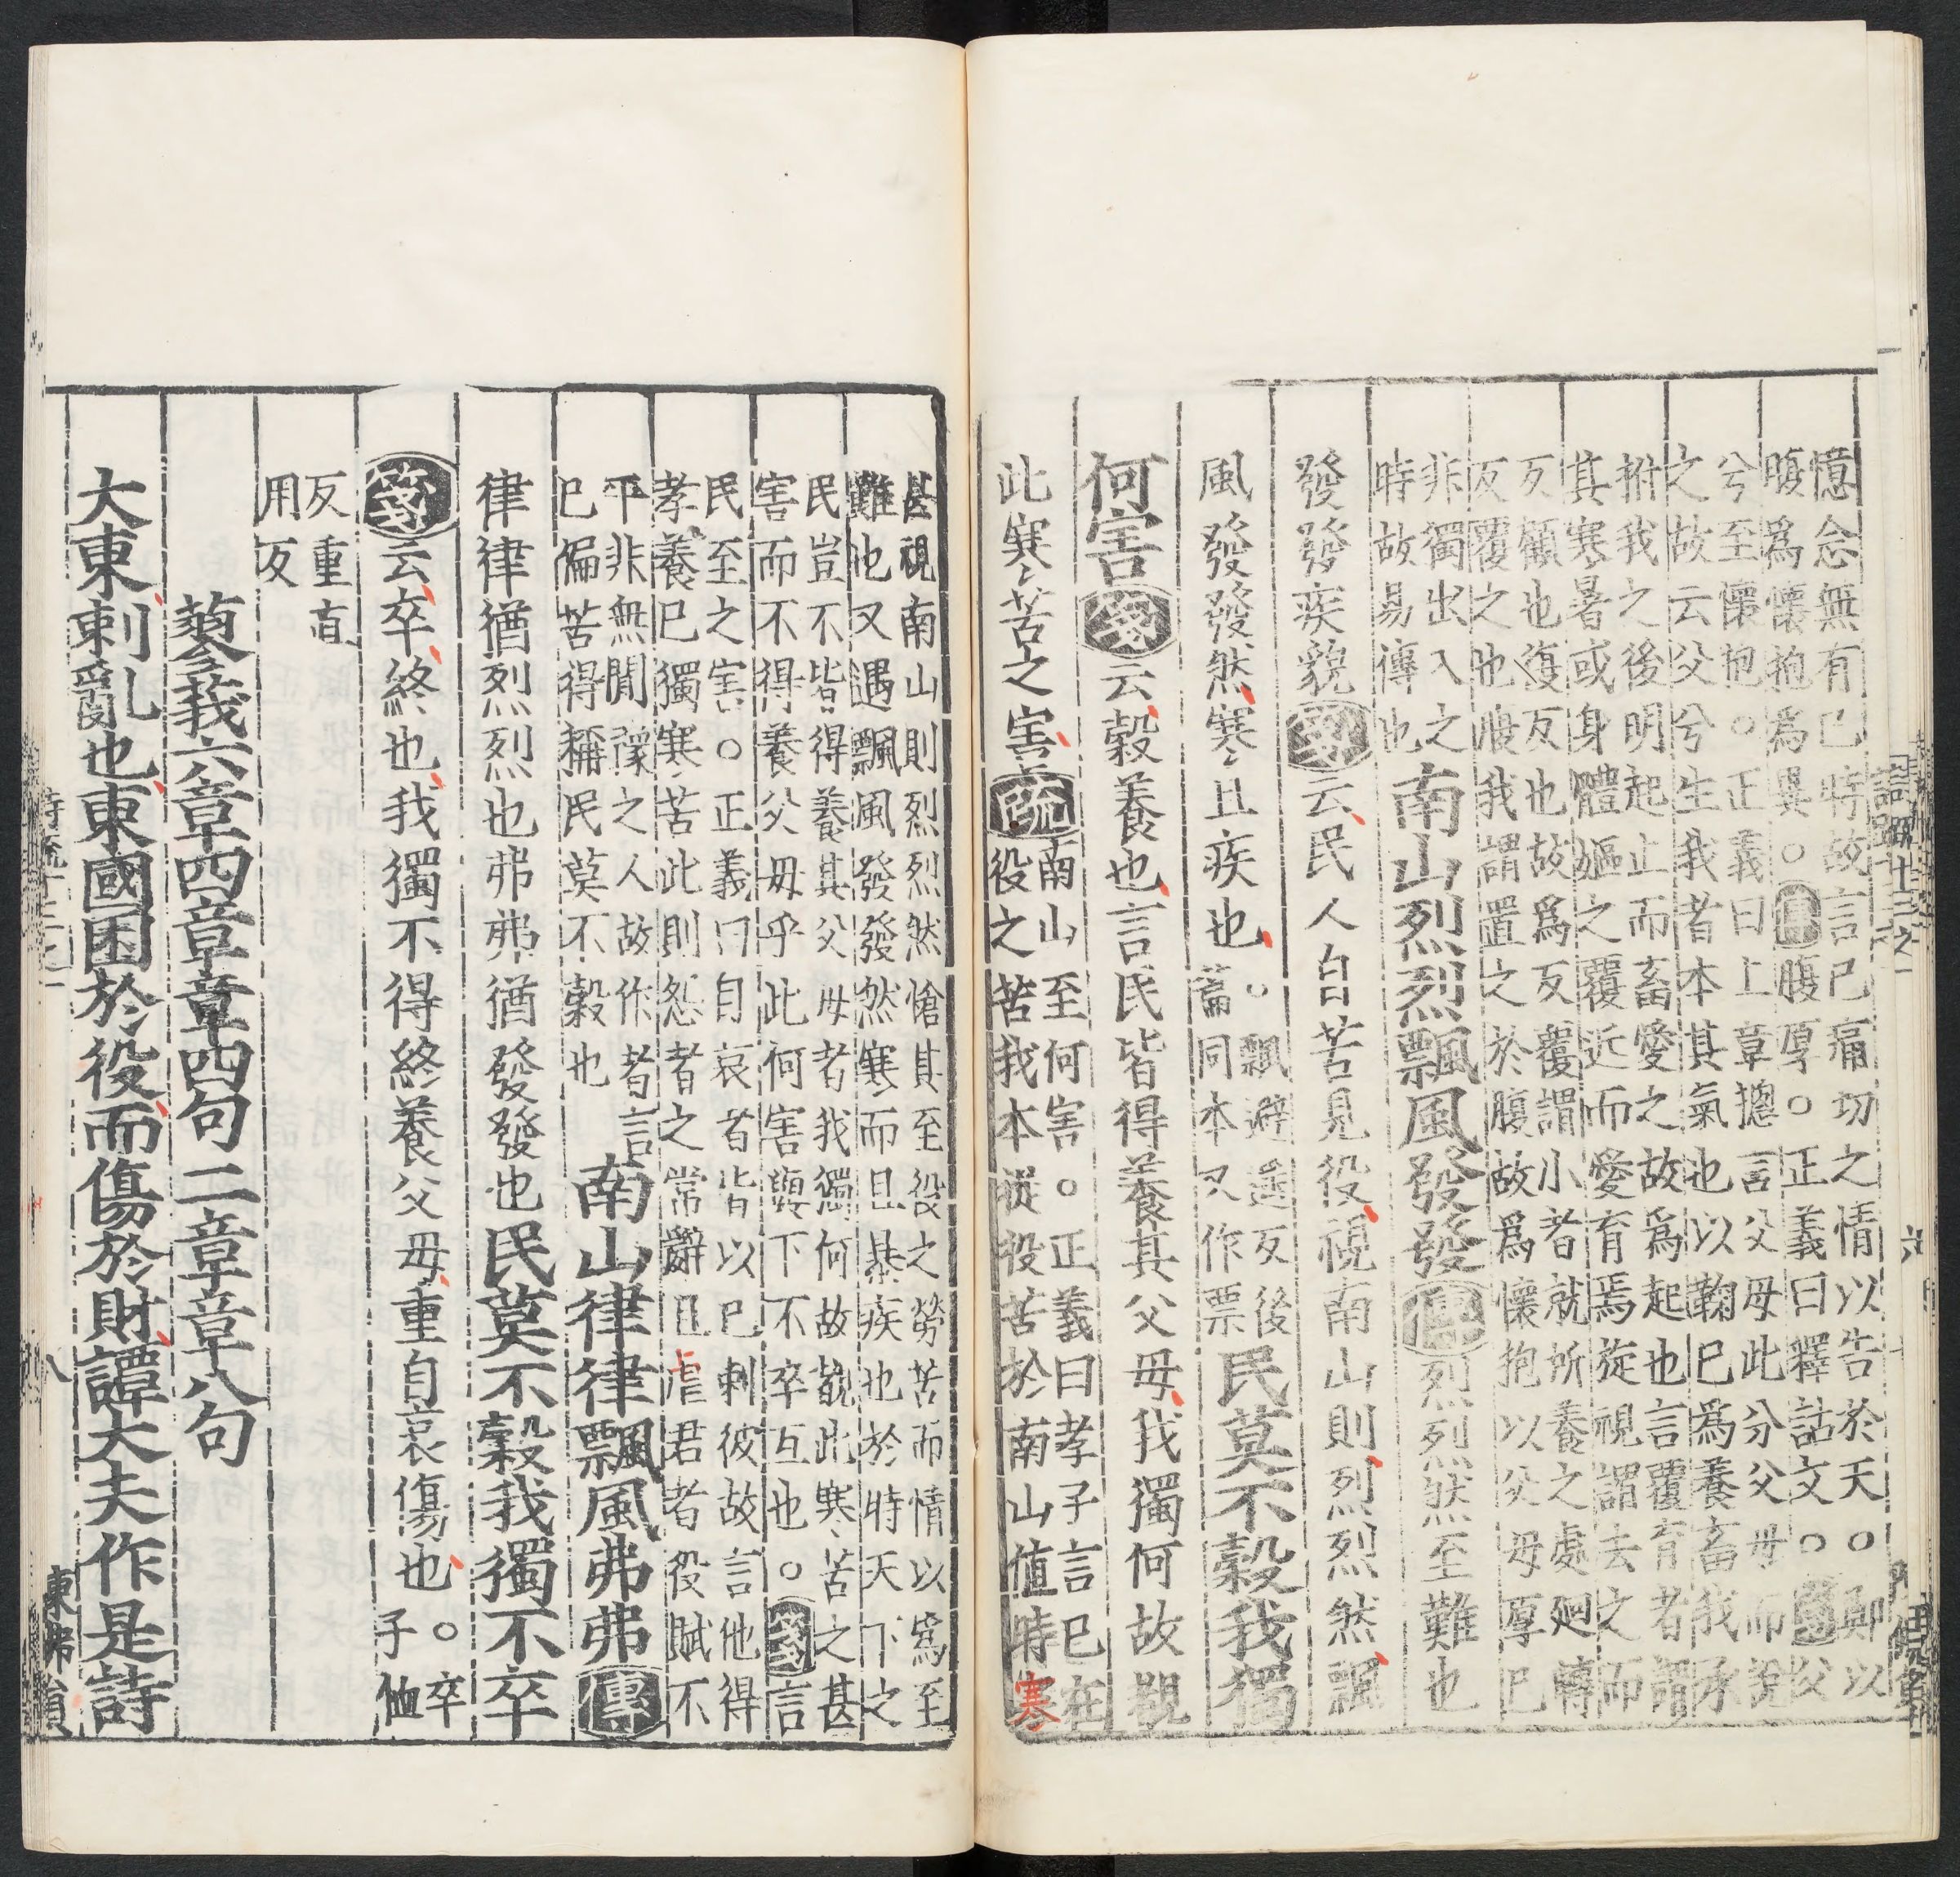 憶念無有已時故言已痛切之情以告於天○鄭以
腹爲懷抱爲異○傳腹厚○正義曰釋詁文○箋父
兮至懷抱○正義曰上章摠言父母此分父母而說
之故云父兮生我者本其氣也以鞠已爲養畜我承
拊我之後明起止而畜愛之故爲起也言覆育者謂
其寒暑或身體嫗之覆近而愛育焉旋視謂去之而
反顧也復反也故爲反覆謂小者就所養之處迴轉
反覆之也腹我謂置之於腹故爲懷抱以父母厚已
非獨出入之
時故易傳也
南山烈烈飄風發發傳烈烈然至難也
發發疾貌箋云民人自苦見役視南山則烈烈然飄
風發發然寒且疾也
○飄避遥反後
篇同本又作票
民莫不穀我獨
何害箋云穀養也言民皆得養其父母我獨何故覩
此寒苦之害疏
南山至何害○正義曰孝子言已在
役之苦我本從役苦於南山値時寒
甚視南山則烈烈然愴其至役之勞苦而情以爲至
難也又遇飄風發發然寒而且暴疾也於時天下之
民豈不皆得養其父母者我獨何故覩此寒苦之甚
害而不得養父母乎此何害與下不卒互也○箋言
民至之害○正義曰自哀者皆以已刺彼故言他得
孝養已獨寒苦此則怨者之常辭且虐君者役賦不
平非無閒豫之人故作者言
已偏苦得稱民莫不穀也
南山律律飄風弗弗傳
律律猶烈烈也弗弗猶發發也民莫不穀我獨不卒
箋云卒終也我獨不得終養父母重自哀傷也
○卒
子恤
反重直
用反
蓼莪六章四章章四句二章章八句
大東刺亂也東國困於役而傷於財譚大夫作是詩